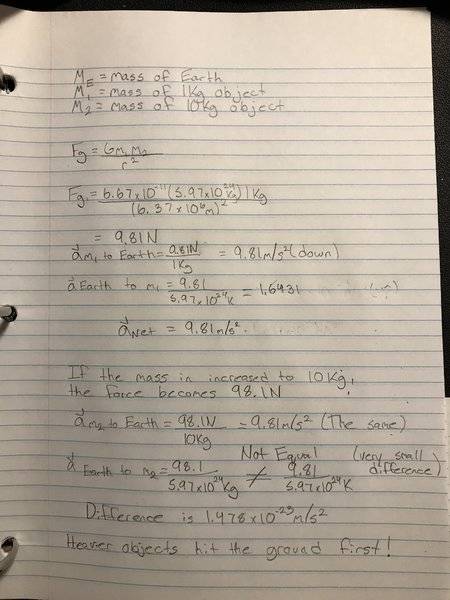 ME = mass of Earth
M1 = mass of 1Kg object
M2 = mass of 10Kg object
Fg = GM1M2 / r²
Fg1 = 6.67x10^-11 (5.97x10^24 Kg) 1Kg / (6.37x10^6 m)²
= 9.81N
a⃗ m1 to Earth = 9.81N / 1Kg = 9.81m/s² (down)
a⃗ Earth to m1 = 9.81 / 5.97x10^24 K = 1.6431
a⃗ Net = 9.81m/s².
If the mass in increased to 10Kg,
the force becomes 98.1N
a⃗ m2 to Earth = 98.1N / 10Kg = 9.81m/s² (The same)
a⃗ Earth to m2 = 98.1 / 5.97x10^24 Kg ≠ Not Equal 9.81 / 5.97x10^24 K (very small difference)
Difference is 1.478x10^-23 m/s²
Heavier objects hit the ground first!